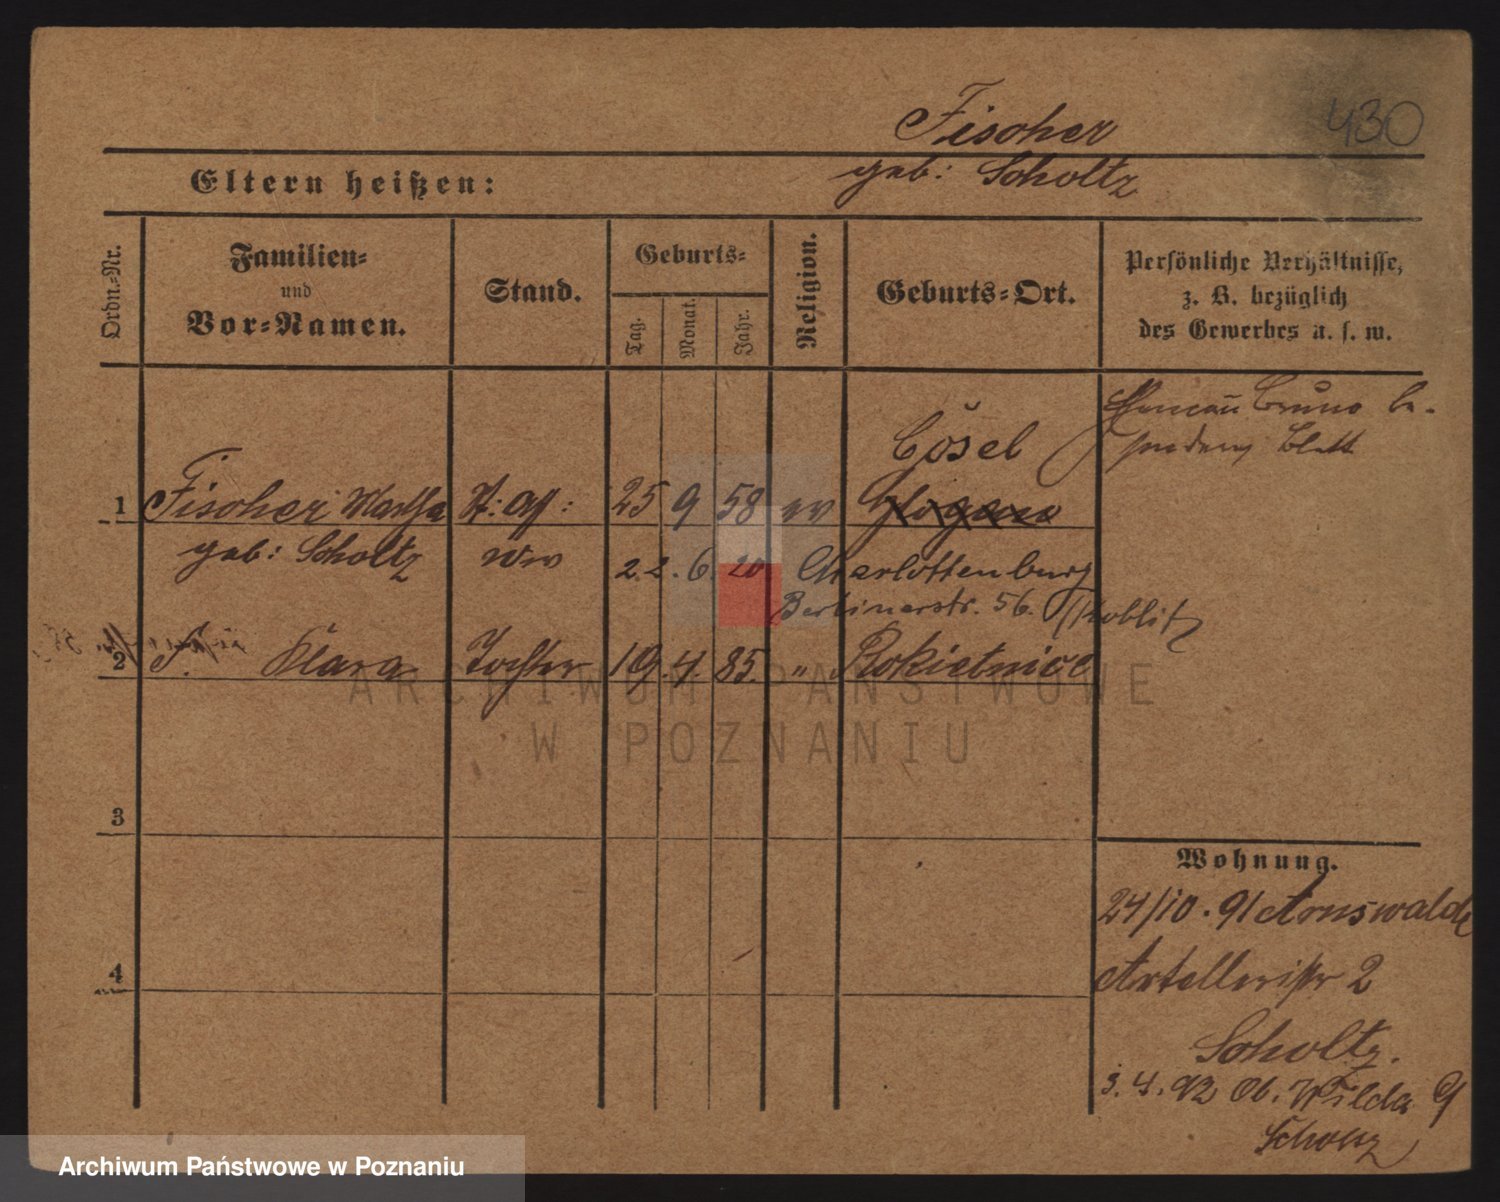 430
Fischer
geb: Scholtz
Eltern heißen:
Ordn.-Nr.
Familien-
und
Vor-Namen.
Stand.
Geburts-
Tag.
Monat.
Jahr.
Religion.
Geburts-Ort.
Persönliche Verhältnisse,
z. B. bezüglich
des Gewerbes u. s. w.
Bruno be-
Blatt
Cosel
1 Fischer Martha 25 9 58 ev Glogau
geb: Scholtz Ww 22. 6. 20 Charlottenburg
Berlinerstr. 56.
2 F. Klara Tochter 19. 4. 85. " Rokietnice
3
4
Wohnung.
24/10. 91 Arnswalde
Artelleristr 2
Scholtz.
3. 4. 92 Ob. Wilda 9
Scholtz
ARCHIWUM PAŃSTWOWE
W POZNANIU
Archiwum Państwowe w Poznaniu